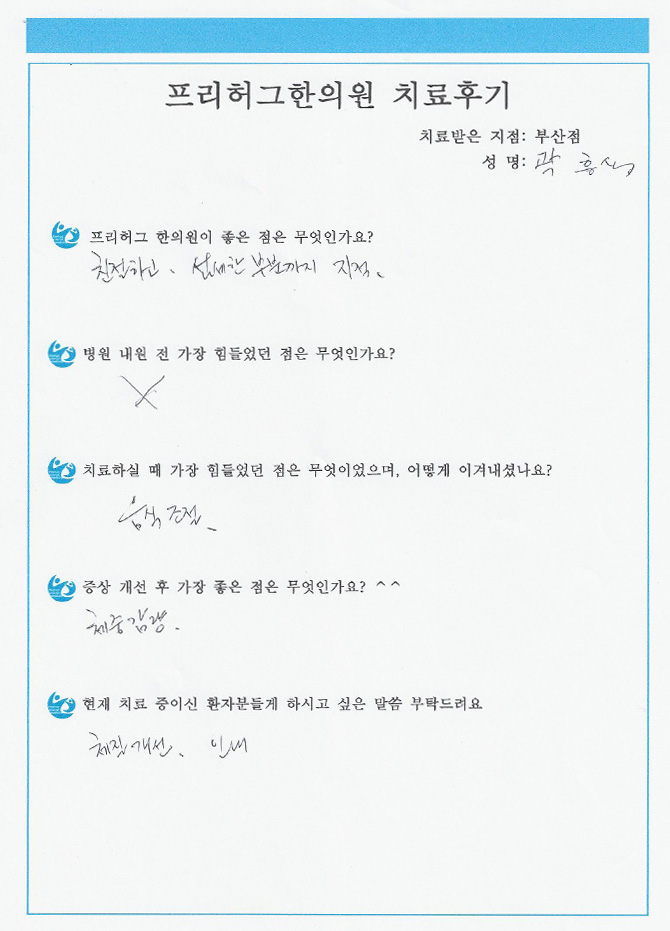 프리허그한의원 치료후기
치료받은 지점: 부산점
성 명: 곽
프리허그 한의원이 좋은 점은 무엇인가요?
친절하고. 섬세한 부분까지 지적.
병원 내원 전 가장 힘들었던 점은 무엇인가요?
X
치료하실 때 가장 힘들었던 점은 무엇이었으며, 어떻게 이겨내셨나요?
음식 조절.
증상 개선 후 가장 좋은 점은 무엇인가요? ^^
체중감량.
현재 치료 중이신 환자분들게 하시고 싶은 말씀 부탁드려요
체질개선. 인내